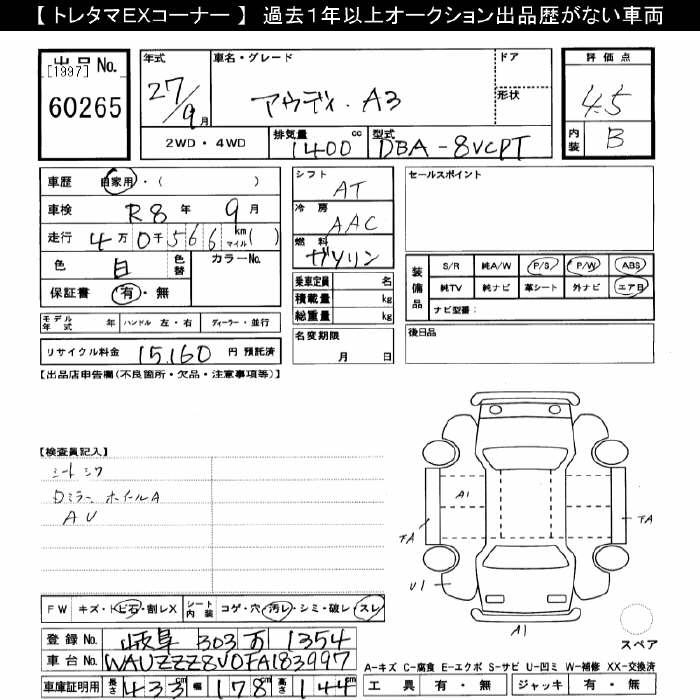 【 トレタマEXコーナー 】 過去1年以上オークション出品歴がない車両
出品No.
[1997]
60265
年式
27/9月
車名・グレード
アウディ・A3
ドア
形状
2WD・4WD
排気量 1400 cc
型式 DBA-8VCPT
評価点
4.5
内装 B
車歴 自家用・( )
車検 R8年 9月
走行 4万0千566 km マイル( )
色 白 色替 カラーNo.
保証書 有・無
シフト AT
冷房 AAC
燃料 ガソリン
乗車定員 名
積載量 kg
総重量 kg
セールスポイント
装備品 S/R 純A/W P/S P/W ABS
純TV 純ナビ 革シート 外ナビ エアB
ナビ型番:
モデル年式 年 ハンドル 左・右 ディーラー・並行
リサイクル料金 15,160 円 預託済
名変期限
月 日
後日品
【出品店申告欄(不良箇所・欠品・注意事項等)】
【検査員記入】
シートシワ
Dミラー ホイールA
AU
A1
TA
TA
U1
A1
スペア
FW キズ・トビ石・割レX シート内装 コゲ・穴・汚レ・シミ・破レ・スレ
登録No. 岐阜 303 万 1354
車台No. WAUZZZ8V0FA183997
車庫証明用 長さ 433cm 幅 178cm 高さ 144cm
A-キズ C-腐食 E-エクボ S-サビ U-凹ミ W-補修 XX-交換済
工具 有・無 ジャッキ 有・無